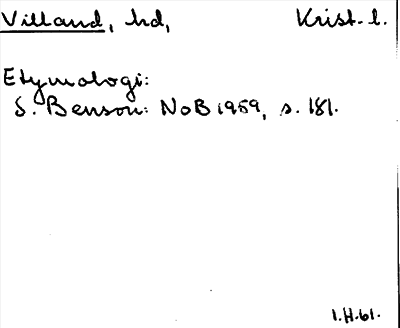 Villand, hd, Krist. l.
Etymologi:
S. Benson: NoB 1959, s. 181.
1.H.61.